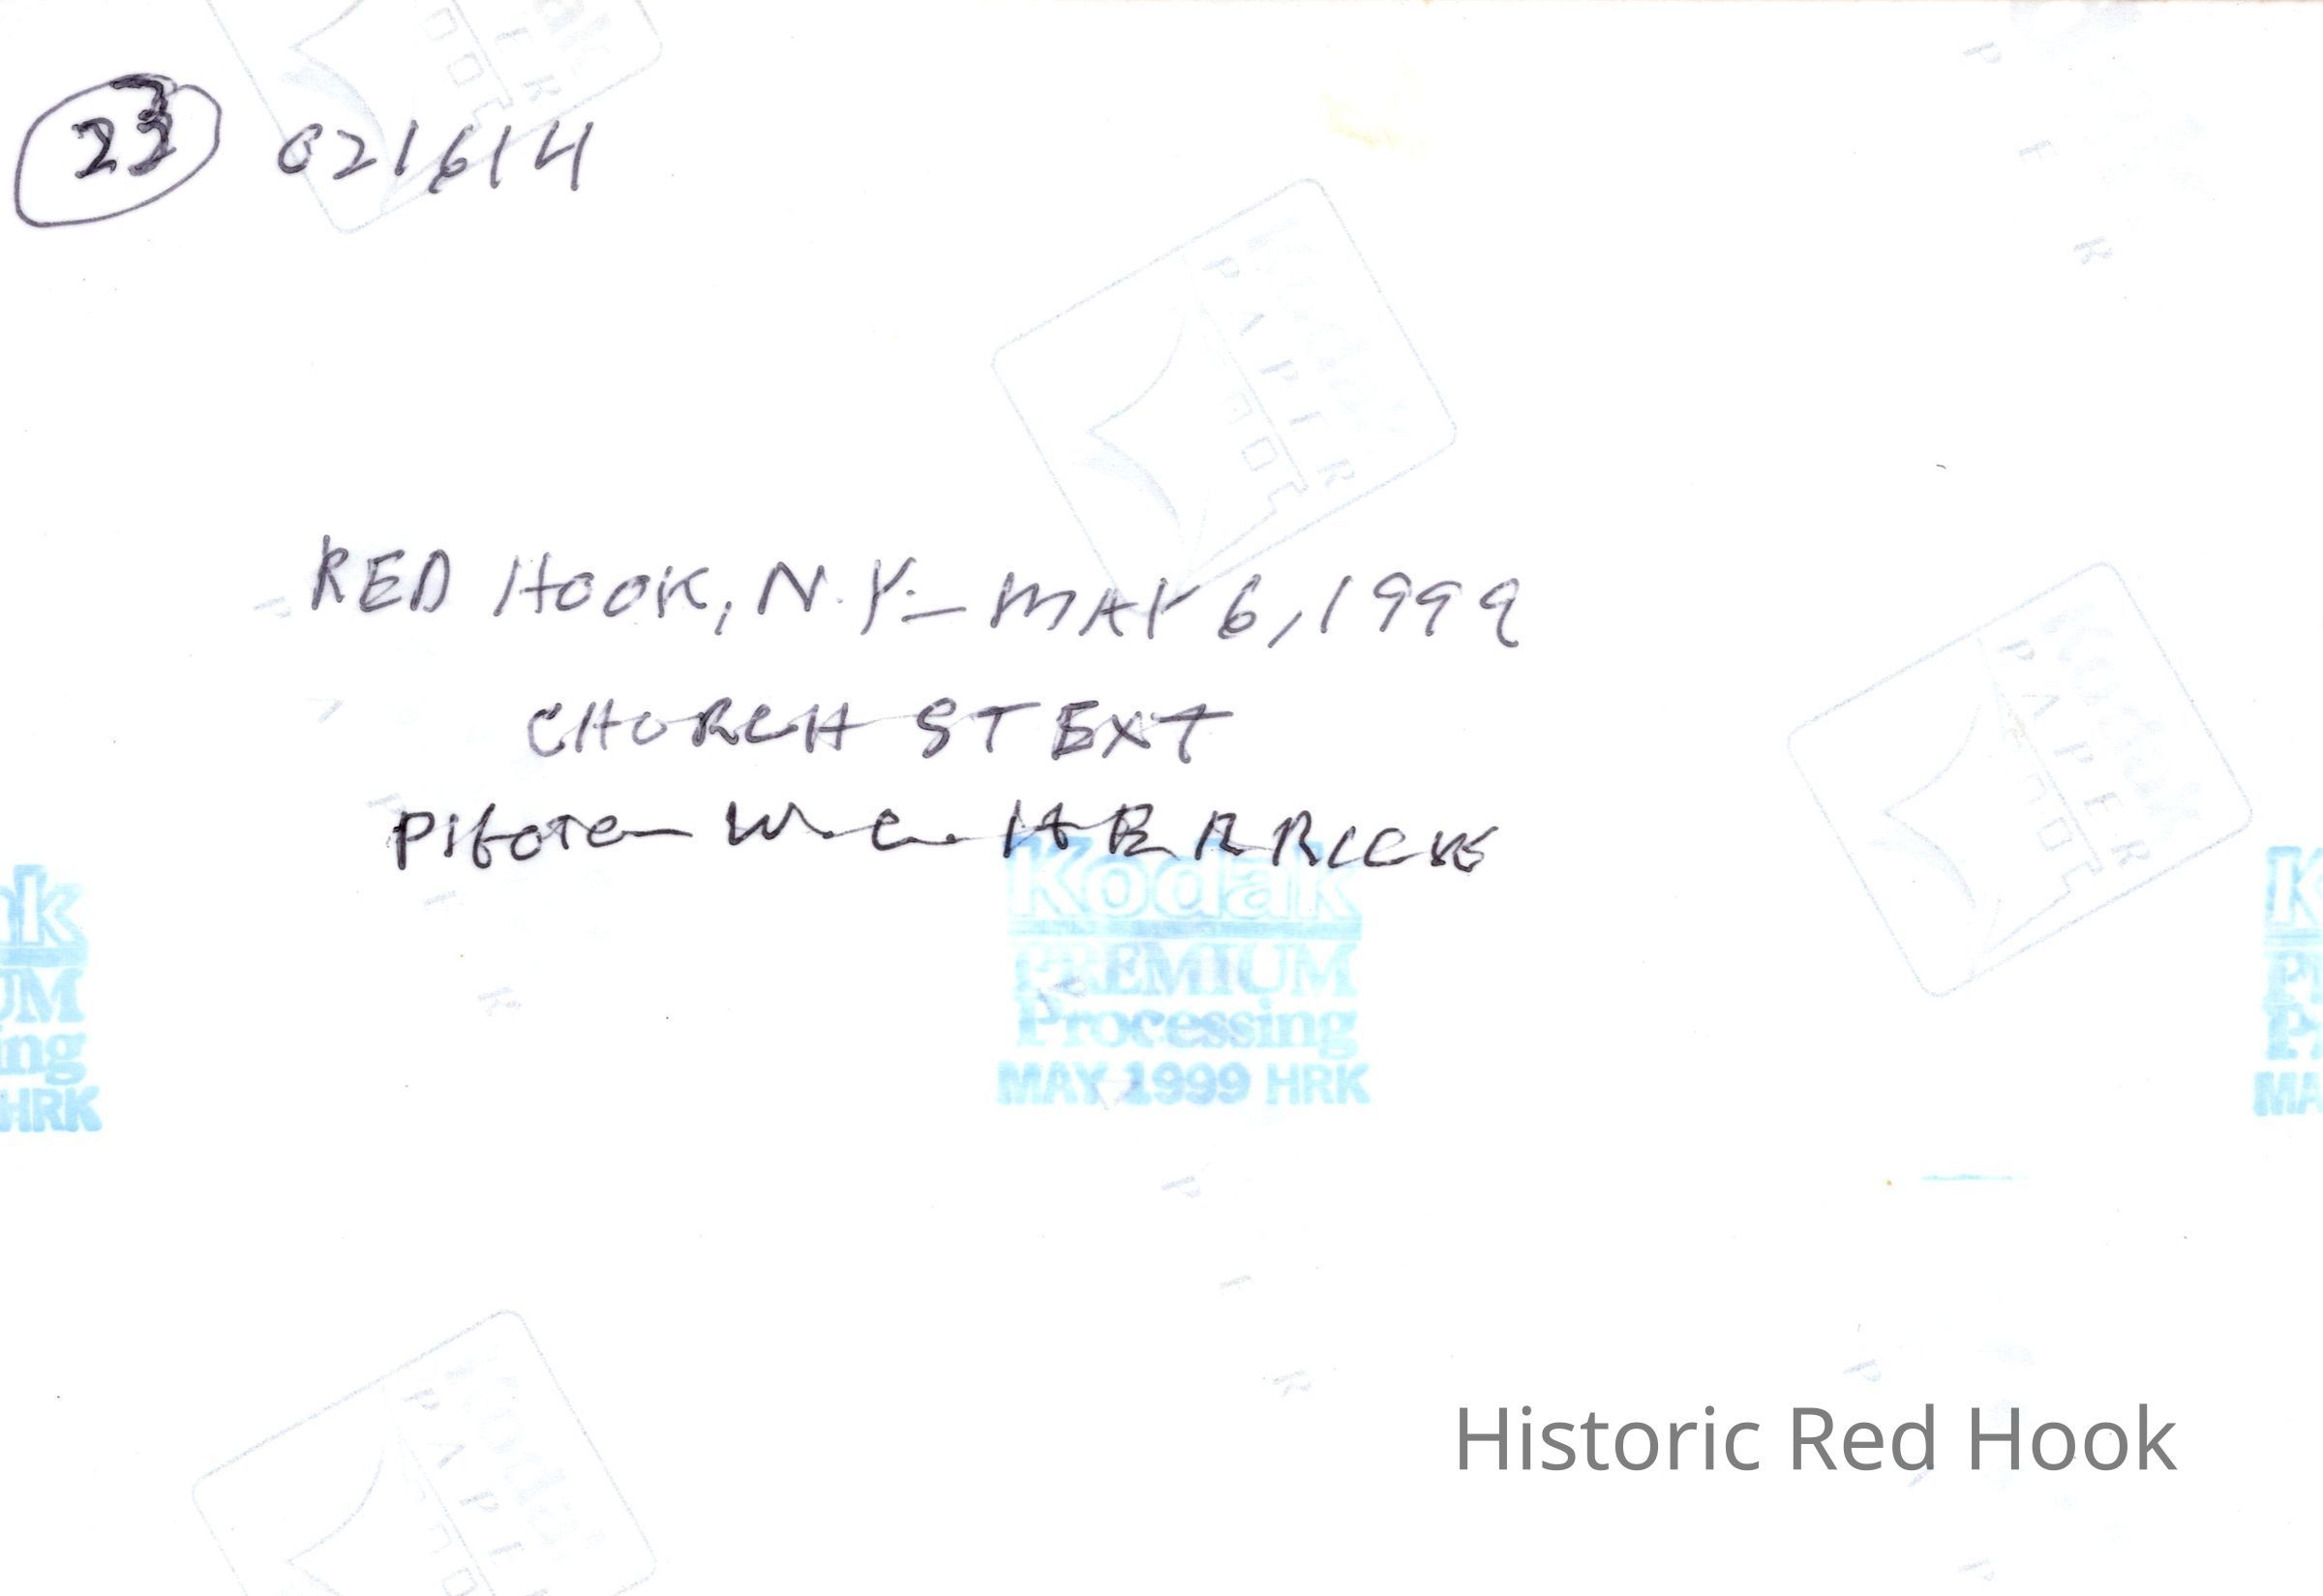 23 021614
RED HOOK, N.Y. - MAY 6, 1999
CHURCH ST EXT
PHOTO - W. C. HERRICK
Kodak
PREMIUM
Processing
MAY 1999 HRK
Kodak
PAPER
Kodak
PAPIER
Historic Red Hook